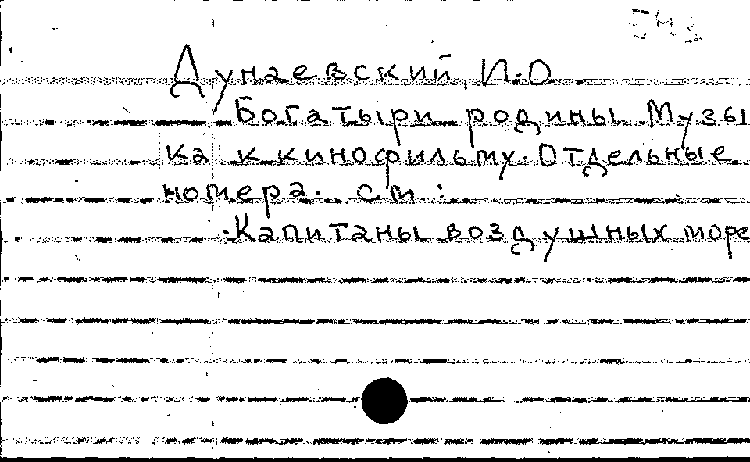 Дунаевский, И.О
Богатыри родины. Музы
ка к кинофильму. Отдельные
номера. см:
Капитаны воздушных море